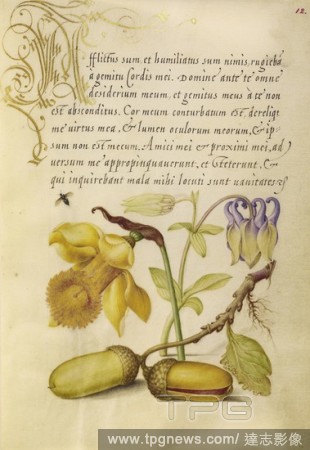 12.
Afflictus sum, et humiliatus sum nimis, rugieba
a gemitu Cordis mei. Domine ante te omne
desiderium meum, et gemitus meus a te non
est absconditus. Cor meum conturbatum est, dereliqt
me virtus mea, & lumen oculorum meorum, & ip
sum non est mecum. Amici mei & proximi mei, ad
versum me appropinquauerunt, et steterunt. &
qui inquirebant mala mihi locuti sunt uanitates,
TPG
www.tpgnews.com/ 達志影像